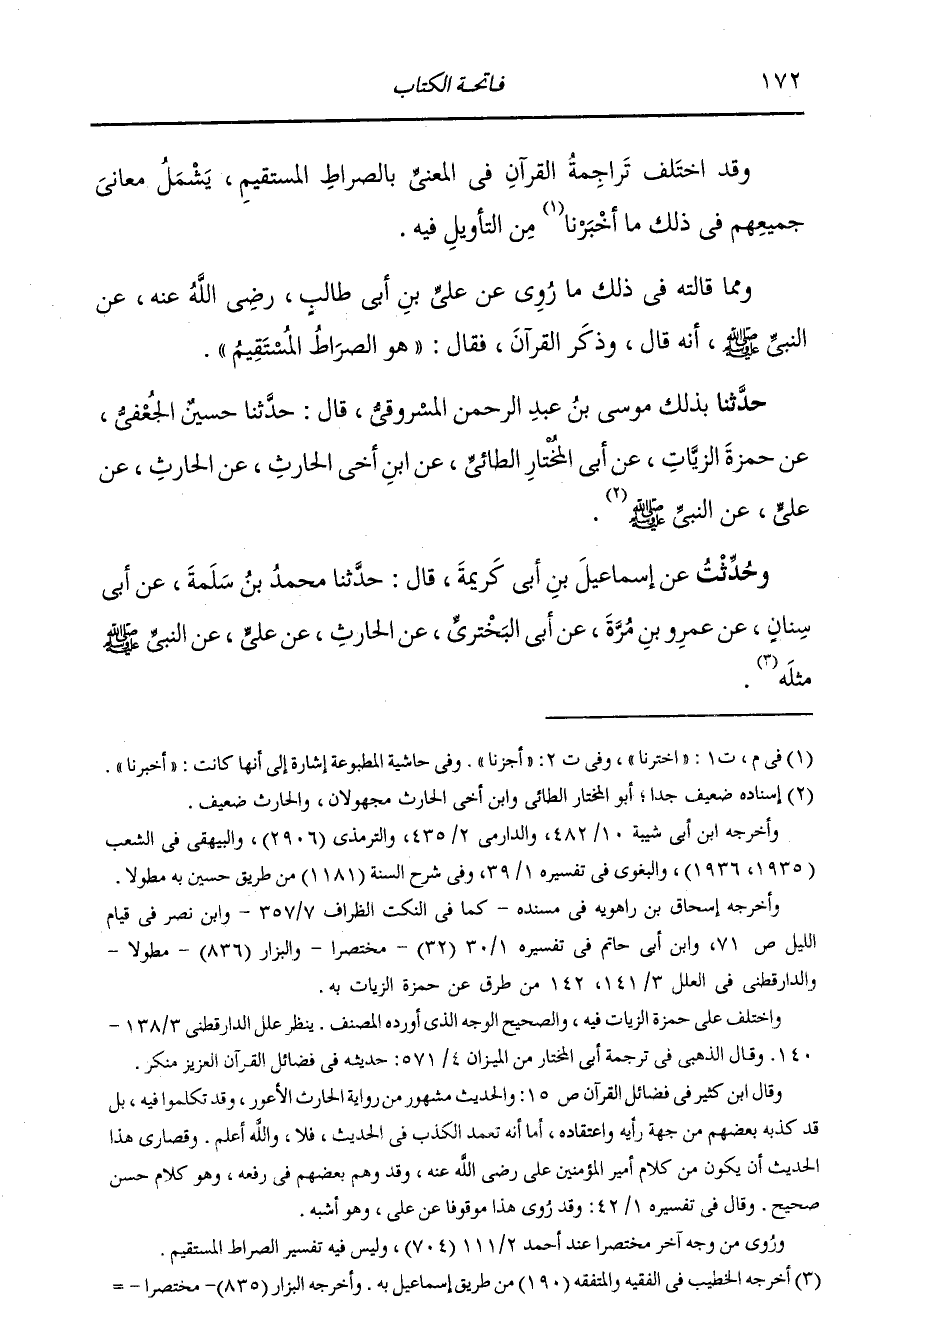 ١٧٢
فاتحة الكتاب
وقد اختَلف تَراجِمةُ القرآنِ فى المعنىِّ بالصراطِ المستقيمِ ، يَشْمَلُ معانىَ
جميعِهم فى ذلك ما أخْبَرْنا(١) مِن التأويلِ فيه .
ومما قالته فى ذلك ما رُوِى عن علىِّ بنِ أبى طالبٍ ، رضِى اللَّهُ عنه ، عن
النبىِّ ﷺ ، أنه قال ، وذكَر القرآنَ ، فقال : « هو الصرَاطُ المُسْتَقِيمُ » .
حدَّثنا بذلك موسى بنُ عبدِ الرحمن المسْروقىُّ ، قال : حدَّثنا حسينٌ الجُعْفىُّ ،
عن حمزةَ الزيَّاتِ ، عن أبى المُخْتارِ الطائىِّ ، عن ابنِ أخى الحارثِ ، عن الحارثِ ، عن
علىٍّ ، عن النبىِّ ﷺ(٢) .
وحُدِّثْتُ عن إسماعيلَ بنِ أبى كَرِيمةَ ، قال : حدَّثنا محمدُ بنُ سَلَمةَ ، عن أبى
سِنانٍ ، عن عمرِو بنِ مُرَّةَ ، عن أبى البَخْترىِّ ، عن الحارثِ ، عن علىٍّ ، عن النبىِّ ﷺ
مثلَه(٣) .
(١) فى م ، ت١ : « اخترنا » ، وفى ت ٢: « أجزنا » . وفى حاشية المطبوعة إشارة إلى أنها كانت : « أخبرنا » .
(٢) إسناده ضعيف جدا ؛ أبو المختار الطائى وابن أخى الحارث مجهولان ، والحارث ضعيف .
وأخرجه ابن أبى شيبة ١٠/ ٤٨٢، والدارمى ٢/ ٤٣٥، والترمذى (٢٩٠٦) ، والبيهقى فى الشعب
(١٩٣٥، ١٩٣٦) ، والبغوى فى تفسيره ١/ ٣٩، وفى شرح السنة (١١٨١) من طريق حسين به مطولا .
وأخرجه إسحاق بن راهويه فى مسنده - كما فى النكت الظراف ٣٥٧/٧ - وابن نصر فى قيام
الليل ص ٧١، وابن أبى حاتم فى تفسيره ٣٠/١ (٣٢) - مختصرا - والبزار (٨٣٦) - مطولا -
والدارقطنى فى العلل ٣/ ١٤١، ١٤٢ من طرق عن حمزة الزيات به .
واختلف على حمزة الزيات فيه ، والصحيح الوجه الذى أورده المصنف . ينظر علل الدارقطنى ١٣٨/٣ -
١٤٠. وقال الذهبى فى ترجمة أبى المختار من الميزان ٤/ ٥٧١: حديثه فى فضائل القرآن العزيز منكر .
وقال ابن كثير فى فضائل القرآن ص ١٥: والحديث مشهور من رواية الحارث الأعور ، وقد تكلموا فيه ، بل
قد كذبه بعضهم من جهة رأيه واعتقاده ، أما أنه تعمد الكذب فى الحديث ، فلا ، والله أعلم . وقصارى هذا
الحديث أن يكون من كلام أمير المؤمنين على رضى الله عنه ، وقد وهم بعضهم فى رفعه ، وهو كلام حسن
صحيح . وقال فى تفسيره ١/ ٤٢: وقد رُوى هذا موقوفا عن على ، وهو أشبه .
ورُوى من وجه آخر مختصرا عند أحمد ١١١/٢ (٧٠٤) ، وليس فيه تفسير الصراط المستقيم .
(٣) أخرجه الخطيب فى الفقيه والمتفقه (١٩٠) من طريق إسماعيل به . وأخرجه البزار (٨٣٥)- مختصرا - =